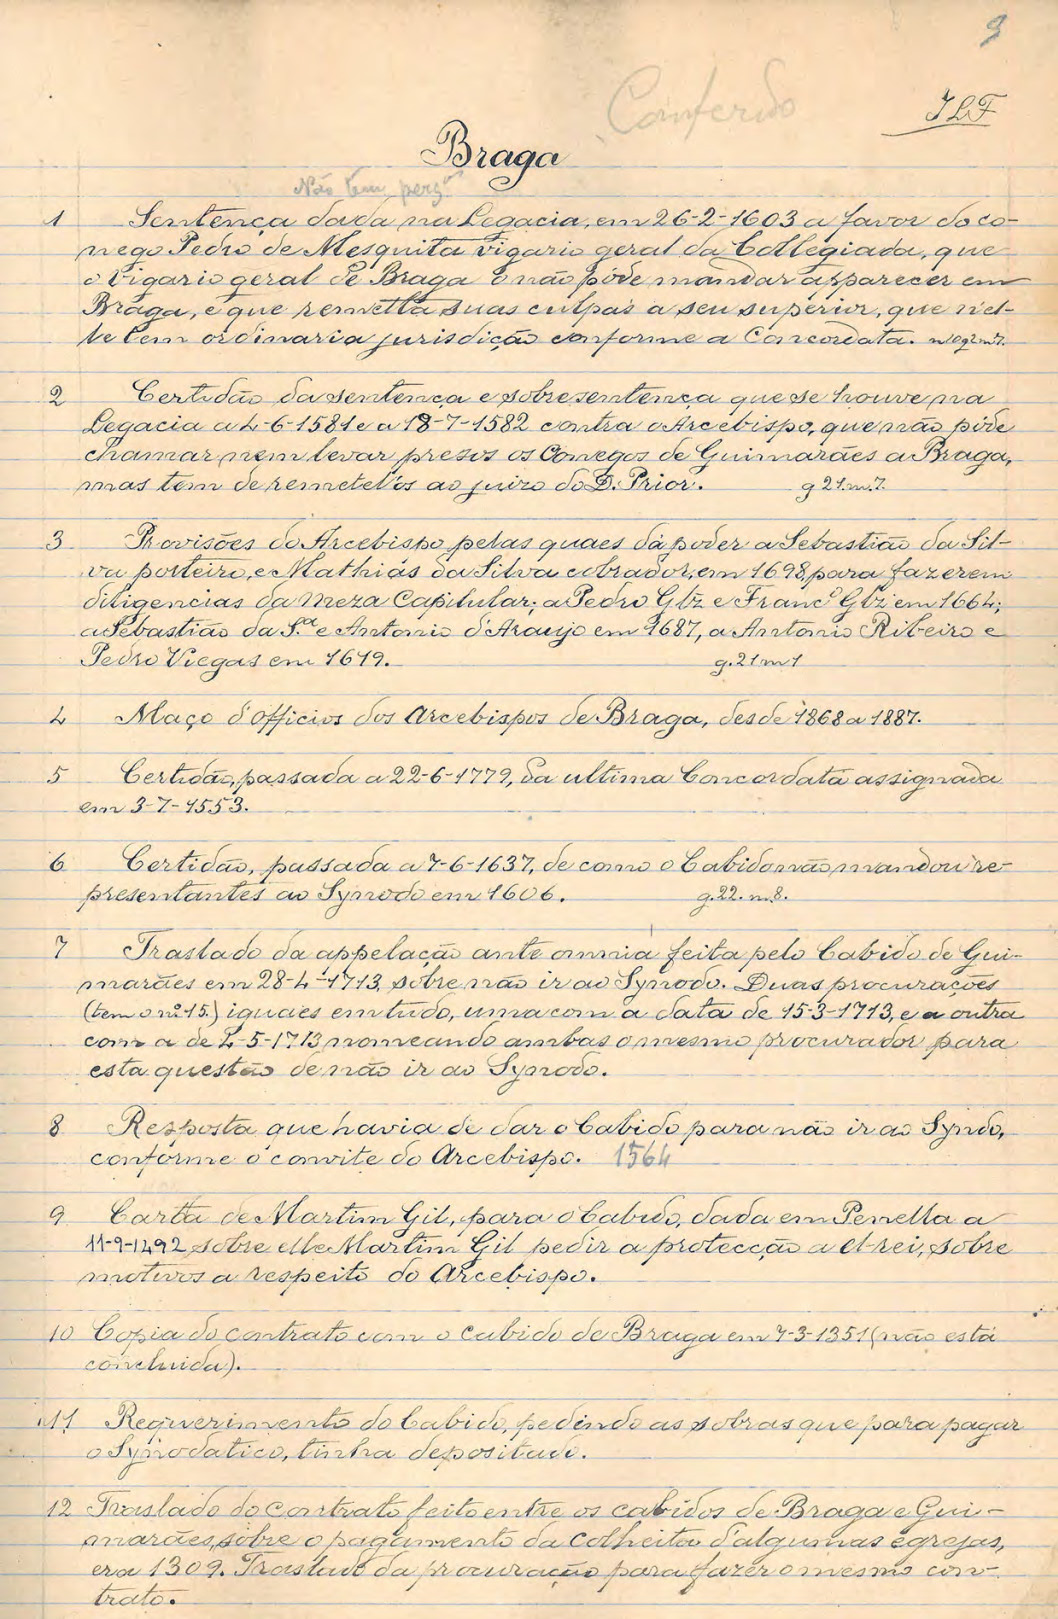 9
Conferido
JLF
Braga
Não tem perg.º
1 Sentença dada na Legacia, em 26-2-1603 a favor do co-
nego Pedro de Mesquita vigario geral da Collegiada, que
o vigario geral de Braga o não póde mandar apparecer em
Braga, e que remetta suas culpas a seu superior, que n'el-
le tem ordinaria jurisdição conforme a Concordata.
2 Certidão da sentença e sobresentença que se houve na
Legacia a 4-6-1581 e a 18-7-1582 contra o Arcebispo, que não póde
chamar nem levar presos os Conegos de Guimarães a Braga,
mas tem de remetel'os ao juizo do D. Prior. g 21.m.7.
3 Provisões do Arcebispo pelas quaes dá poder a Sebastião da Sil-
va porteiro, e Mathiás da Silva cobrador, em 1698, para fazerem
diligencias da Meza Capitular; a Pedro Glz e Franc.º Glz em 1664;
a Sebastião da S.ª e Antonio d'Araujo em 1687, a Antonio Ribeiro e
Pedro Viegas em 1619. g.21 m 1
4 Maço d'officios dos Arcebispos de Braga, desde 1868 a 1887.
5 Certidão, passada a 22-6-1779, da ultima Concordata assignada
em 3-7-1553.
6 Certidão, passada a 7-6-1637, de como o Cabido não mandou re-
presentantes ao Synodo em 1606. g.22. m.8.
7 Traslado da appelação ante omnia feita pelo Cabido de Gui-
marães em 28-4-1713, sobre não ir ao Synodo. Duas procurações
(tem o nº 15.) iguaes em tudo, uma com a data de 15-3-1713, e a outra
com a de 4-5-1713 nomeando ambas o mesmo procurador para
esta questão de não ir ao Synodo.
8 Resposta que havia de dar o Cabido para não ir ao Syndo,
conforme o convite do Arcebispo. 1564
9 Carta de Martim Gil, para o Cabido, dada em Penella a
11-9-1492 sobre elle Martim Gil pedir a protecção a el-rei, sobre
motivos a respeito do Arcebispo.
10 Copia do contrato com o cabido de Braga em 7-3-1351 (não está
concluida).
11 Requerimento do Cabido, pedindo as sobras que para pagar
o Synodatico, tinha depositado.
12 Traslado do contrato feito entre os cabidos de Braga e Gui-
marães, sobre o pagamento da colheita d'algumas egrejas,
era 1309. Traslado da procuração para fazer o mesmo con-
trato.